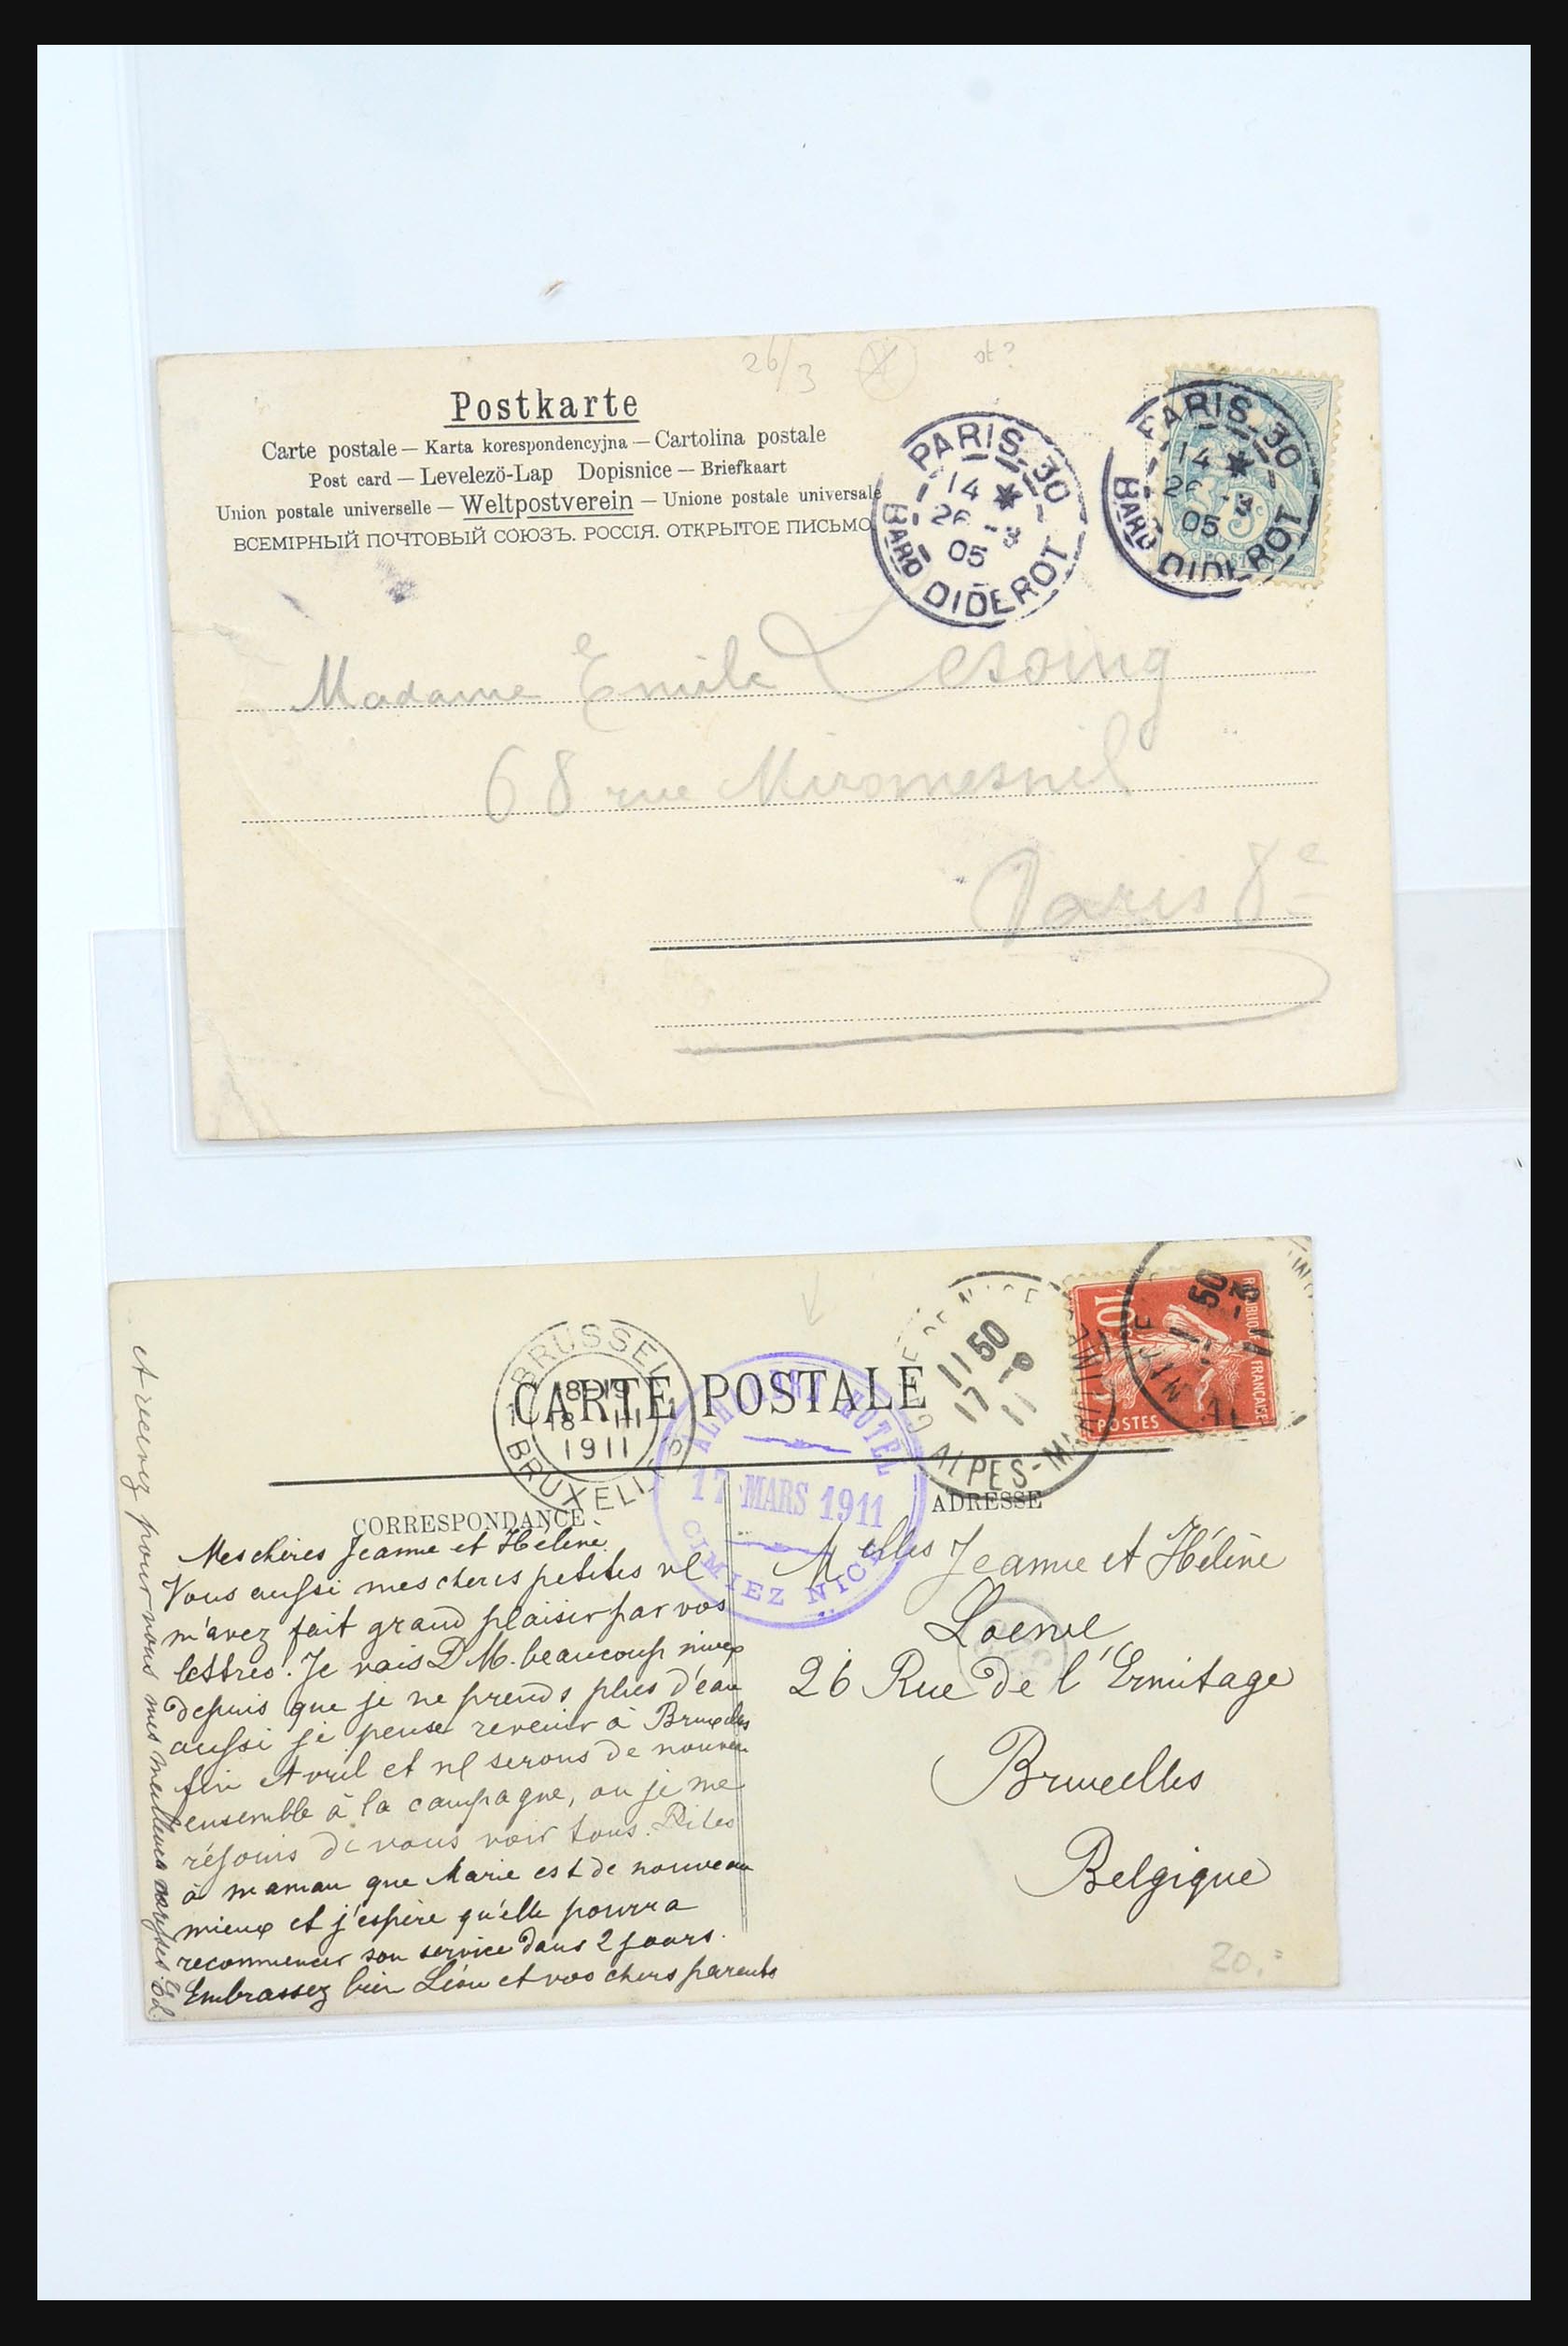 26/3
st?
Postkarte
Carte postale — Karta korespondencyjna — Cartolina postale
Post card — Levelező-Lap Dopisnice — Briefkaart
Union postale universelle — Weltpostverein — Unione postale universale
ВСЕМІРНЫЙ ПОЧТОВЫЙ СОЮЗЪ. РОССІЯ. ОТКРЫТОЕ ПИСЬМО
PARIS-30
14 *
26 -3
05
BARD DIDEROT
PARIS-30
14 *
26 -3
05
BARD DIDEROT
5c
Madame Emile Lessing
68 rue Miromesnil
Paris 8e
BRUSSEL
18-19
18 III
1911
BRUXELLES
CARTE POSTALE
ALHAMBRA HOTEL
17 MARS 1911
CIMIEZ NICE
11 50
17 -3
11
ALPES-M
10
POSTES
FRANÇAISE
50
CORRESPONDANCE
ADRESSE
Mes chères Jeanne et Hélène.
Vous aussi mes chères petites vs
m'avez fait grand plaisir par vos
lettres. Je vais D. M. beaucoup mieux
depuis que je ne prends plus d'eau
aussi je pense revenir à Bruxelles
fin Avril et ns serons de nouveau
ensemble à la campagne, où je me
réjouis de vous voir tous. Dites
à maman que Marie est de nouveau
mieux et j'espère qu'elle pourra
recommencer son service dans 2 jours.
Embrassez bien Léon et vos chers parents
et recevez pour vous mes meilleures caresses. Ed.
Melles Jeanne et Hélène
Loewe
26 Rue de l'Ermitage
Bruxelles
Belgique
20.=